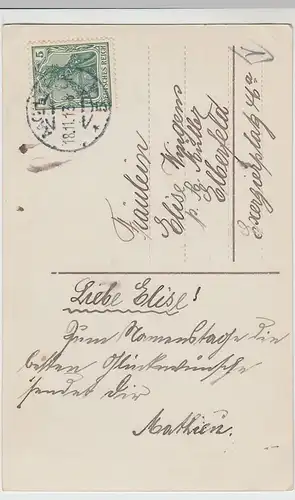 5
DEUTSCHES REICH
18.11.1
Fräulein
Elise Wingens
p. A. Müller
Elberfeld
Exerzierplatz 4a
Liebe Elise!
Zum Namenstage die
besten Glückwünsche
sendet Dir
Mathieu.